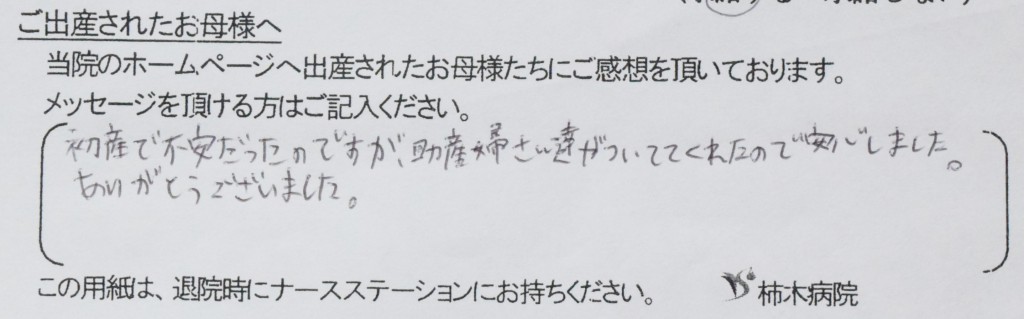 ご出産されたお母様へ
当院のホームページへ出産されたお母様たちにご感想を頂いております。
メッセージを頂ける方はご記入ください。
初産で不安だったのですが、助産婦さん達がついててくれたので安心しました。
ありがとうございました。
この用紙は、退院時にナースステーションにお持ちください。
柿木病院